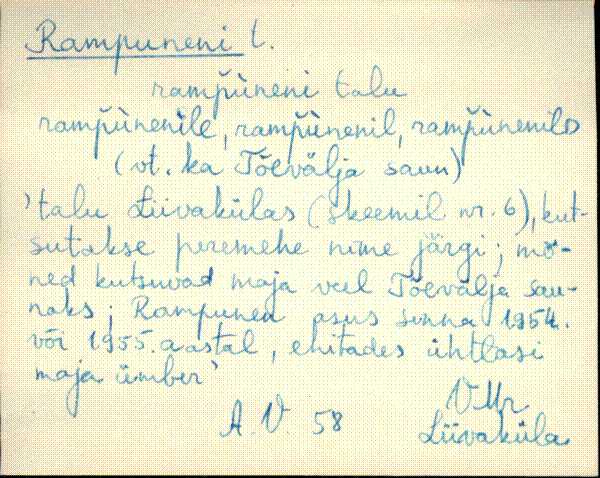 Rampuneni t.
rampuneni talu
rampunenile, rampunenil, rampunenilo
(vt. ka Tõevälja saun)
'talu Liivakülas (skeemil nr. 6), kut-
sutakse peremehe nime järgi; mõ-
ned kutsuvad maja veel Tõevälja sau-
naks; Rampunen asus sinna 1954.
või 1955. aastal, ehitades ühtlasi
maja ümber'
V. Mr
A. V. 58
Liivaküla